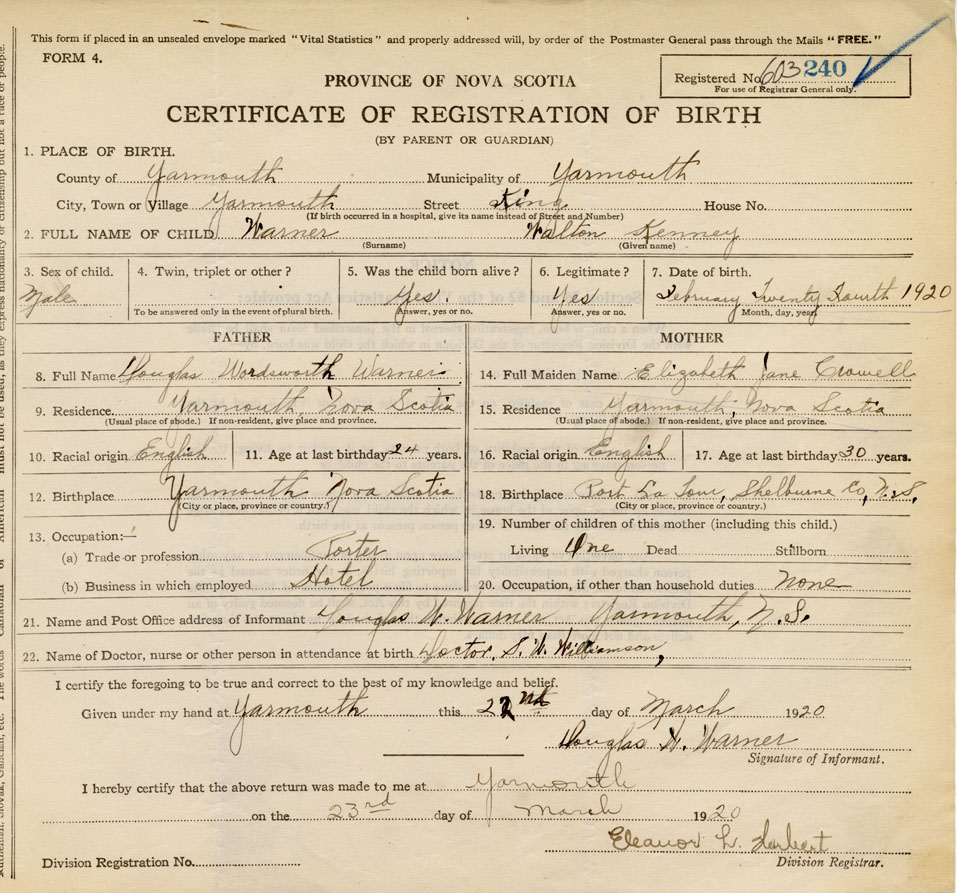 This form if placed in an unsealed envelope marked "Vital Statistics" and properly addressed will, by order of the Postmaster General pass through the Mails "FREE."
FORM 4.
Registered No. 603 240
For use of Registrar General only.
PROVINCE OF NOVA SCOTIA
CERTIFICATE OF REGISTRATION OF BIRTH
(BY PARENT OR GUARDIAN)
1. PLACE OF BIRTH.
County of Yarmouth Municipality of Yarmouth
City, Town or Village Yarmouth Street King House No.
(If birth occurred in a hospital, give its name instead of Street and Number)
2. FULL NAME OF CHILD Warner Walton Kenney
(Surname) (Given name)
3. Sex of child. 4. Twin, triplet or other? 5. Was the child born alive? 6. Legitimate? 7. Date of birth.
Male Yes. Yes February Twenty Fourth 1920
To be answered only in the event of plural birth. Answer, yes or no. Answer, yes or no. Month, day, year
FATHER
8. Full Name Douglas Wordsworth Warner
9. Residence. Yarmouth, Nova Scotia
(Usual place of abode.) If non-resident, give place and province.
10. Racial origin English 11. Age at last birthday 24 years.
12. Birthplace Yarmouth Nova Scotia
(City or place, province or country.)
13. Occupation:—
(a) Trade or profession Porter
(b) Business in which employed Hotel
MOTHER
14. Full Maiden Name Elizabeth Jane Crowell
15. Residence Yarmouth, Nova Scotia
(Usual place of abode.) If non-resident, give place and province.
16. Racial origin English 17. Age at last birthday 30 years.
18. Birthplace Port La Tour, Shelburne Co, N.S,
(City or place, province or country.)
19. Number of children of this mother (including this child.)
Living One Dead Stillborn
20. Occupation, if other than household duties. None
21. Name and Post Office address of Informant Douglas W. Warner Yarmouth, N.S.
22. Name of Doctor, nurse or other person in attendance at birth Doctor, S. W. Williamson,
I certify the foregoing to be true and correct to the best of my knowledge and belief.
Given under my hand at Yarmouth this 22nd day of March 1920
Douglas W. Warner
Signature of Informant.
I hereby certify that the above return was made to me at Yarmouth
on the 23rd day of March 1920
Eleanor L. Herbert
Division Registration No. Division Registrar.